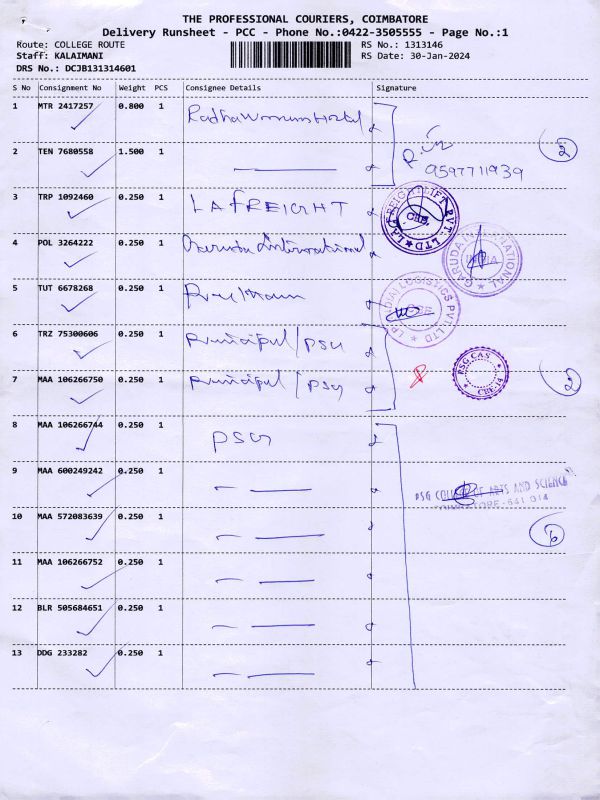 THE PROFESSIONAL COURIERS, COIMBATORE
Delivery Runsheet - PCC - Phone No.:0422-3505555 - Page No.:1
Route: COLLEGE ROUTE
Staff: KALAIMANI
DRS No.: DCJB131314601
RS No.: 1313146
RS Date: 30-Jan-2024
S No Consignment No Weight PCS Consignee Details Signature
1 MTR 2417257 0.800 1
2 TEN 7680558 1.500 1
9597711939
2
3 TRP 1092460 0.250 1 LAFREIGHT
CBE.
4 POL 3264222 0.250 1 International
GARUDA INTERNATIONAL
5 TUT 6678268 0.250 1
LOGISTICS PVT LTD
6 TRZ 75300606 0.250 1 principal / PSG
7 MAA 106266750 0.250 1 principal / PSG
PSG CAS
CBE-14
2
8 MAA 106266744 0.250 1 PSG
9 MAA 600249242 0.250 1
PSG COLLEGE OF ARTS AND SCIENCE
COIMBATORE-641 014
10 MAA 572083639 0.250 1
6
11 MAA 106266752 0.250 1
12 BLR 505684651 0.250 1
13 DDG 233282 0.250 1